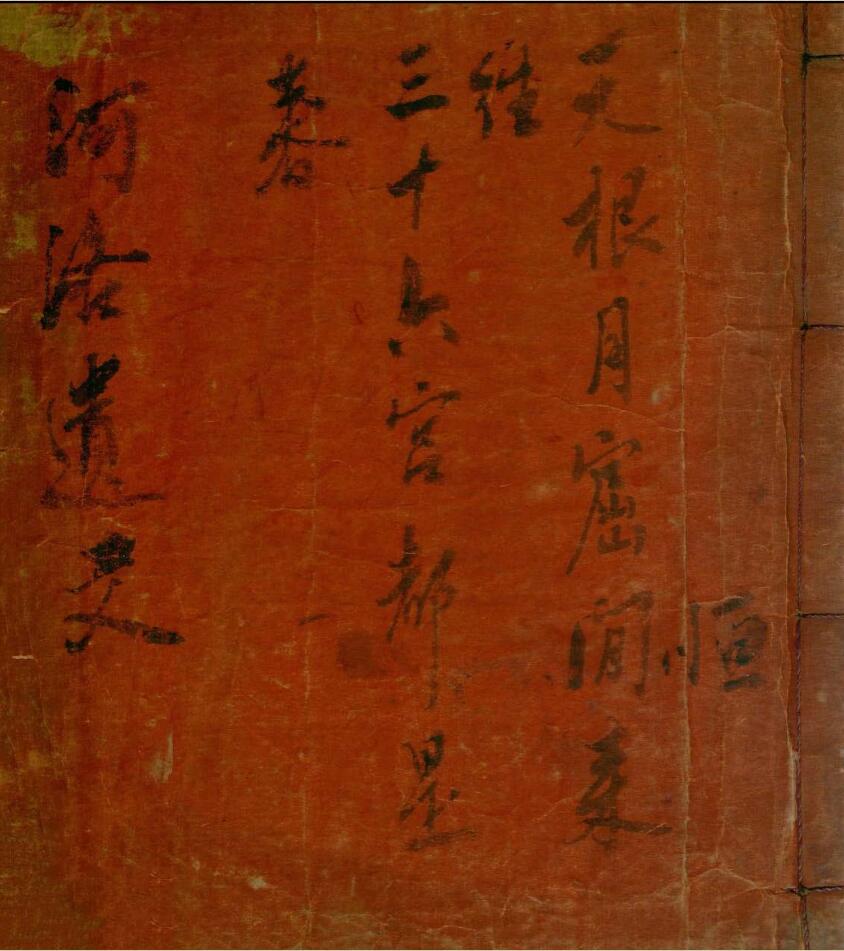 恒
天根月窟閒來
往
三十六宮都是
春
河洛遺